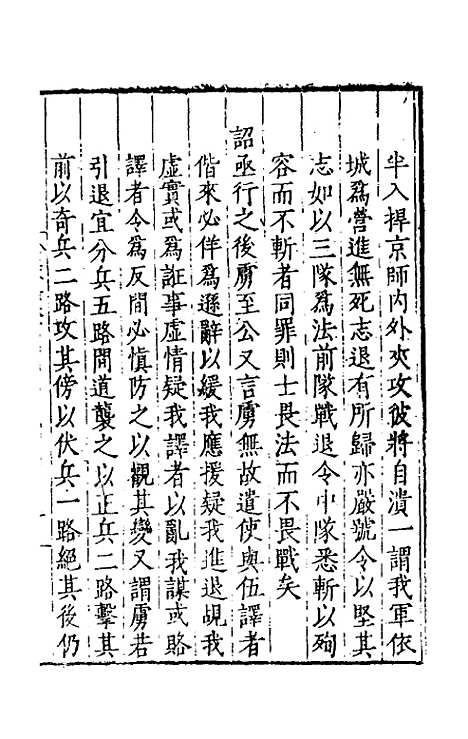 半入捍京師内外夾攻彼將自潰一謂我軍依
城爲營進無死志退有所歸亦嚴號令以堅其
志如以三隊爲法前隊戰退令中隊悉斬以殉
容而不斬者同罪則士畏法而不畏戰矣
詔亟行之後虜至公又言虜無故遣使與伍譯者
偕來必佯爲遜辭以緩我應援疑我進退覘我
虛實或爲誑事虛情疑我譯者以亂我謀或賂
譯者令爲反間必愼防之以觀其變又謂虜若
引退宜分兵五路間道襲之以正兵二路擊其
前以奇兵二路攻其傍以伏兵一路絕其後仍